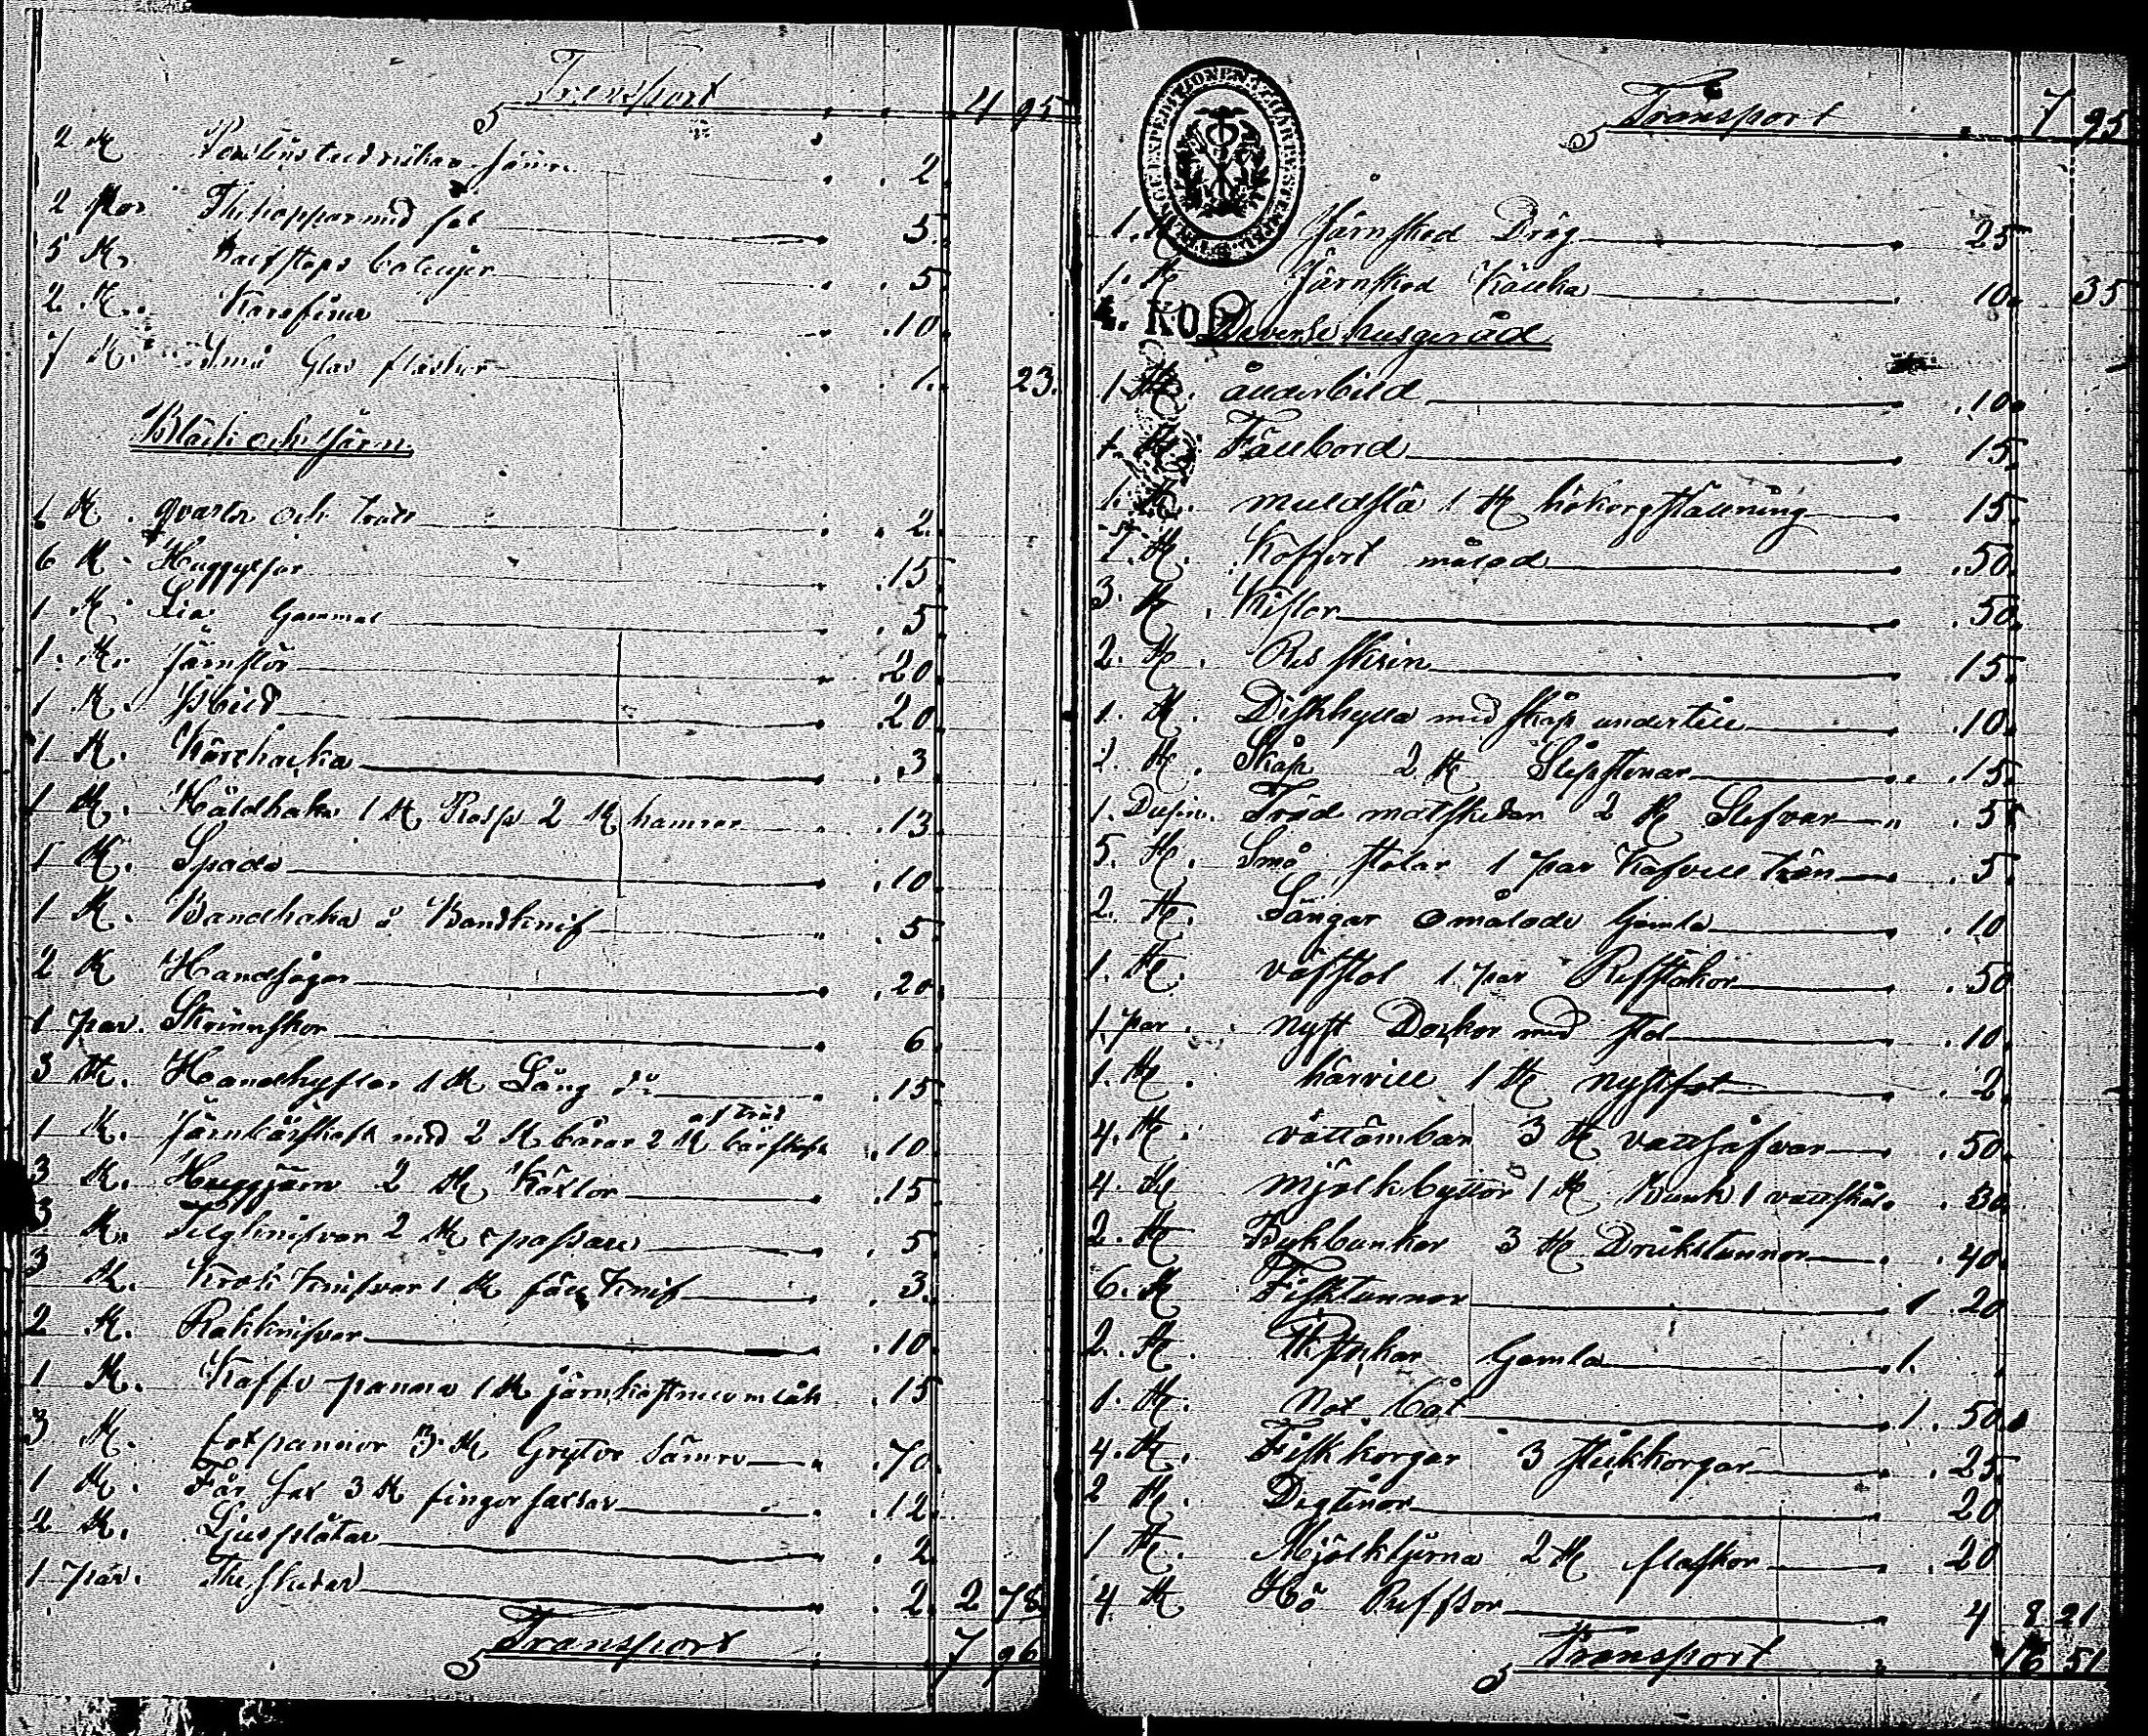 Transport 4 95
2 St Porslins tedrickar sämre 2
2 Par Thekoppar med fat 5
5 St. Halfstops boteljer 5
2. St. Karafiner 10
7 St. Små Glas flaskor 1. 23.
Bläck och Järn
1 St. qvarter och tratt 2
6 St. Huggyxor 15
1 St. Lia Gammal 5
1. St. Järnstör 20
1 St. Isbill 20
1 St. Körrhacka 3
1 St. Håldhake 1 St Rasp 2 St hamrar 13
1 St. Spade 10
1 St. Bandhaka å Bandknif 5
2 St Handsågar 20
1 par. Skrinnskor 6
3 St. Handhyflar 1 St Lång d:o 15
1 St. Järnbärstaft med 2 St bårar 2 St bärstaft af träd 10
3 St. Huggjärn 2 St Källor 15
3 St. Teljknifvar 2 St passare 5
3 St. Krok knifvar 1 St fäll knif 3
2 St. Rakknifvar 10
1 St. Kaffe panna 1 St järnkastrull m låk 15
3 St. fotpannor 3 St Grytor sämre 70
1 St. Får sax 3 St finger saxar 12
2 St. Ljusplåtar 2
1 par. Theskedar 2 2 78
Transport 7 96
CHARTÆ STEMPEL
Transport 7 95
1. St Järnskod Drög 25
1. St Järnskod Kälcka 10 35
KOP
Diverse husgeråd
1 St. ånderbild 10
1 St Fällbord 15
1. St. muldslå 1 St hökorgställning 15
1. St. Koffert målad 50
3. St. Kistor 50
2. St. Res skrin 15
1. St. Diskhylla med skåp undertill 10
2. St. Skåp 2 St Slipstenar 15
1. Dusin. Träd matskedar 2 St Slefvar 5
5. St. Små stolar 1 par Kafvell trän 5
2. St. Sängar omålade Gamla 10
1. St. väfstol 1 par Refstakor 50
1. par nyst Dockor med stol 10
1. St. härvill 1 St nystfot 2
4. St. vattämbar 3 St vattsåfvar 50
4. St mjölkbyttor 1 St Bunk 1 vattskål 30
2. St Bykbunkar 3 St Drickstunnor 40
6. St Fisktunnor 1 20
2. St. Gamla 1.
1. St. Not båt 1. 50
4. St. Fiskkorgar 3 stickkorgar 25
2 St. Degtinor 20
1 St. Mjölktjerna 2 St flaskor 20
4 St Hö Refssor 4 8 21
Transport 16 51